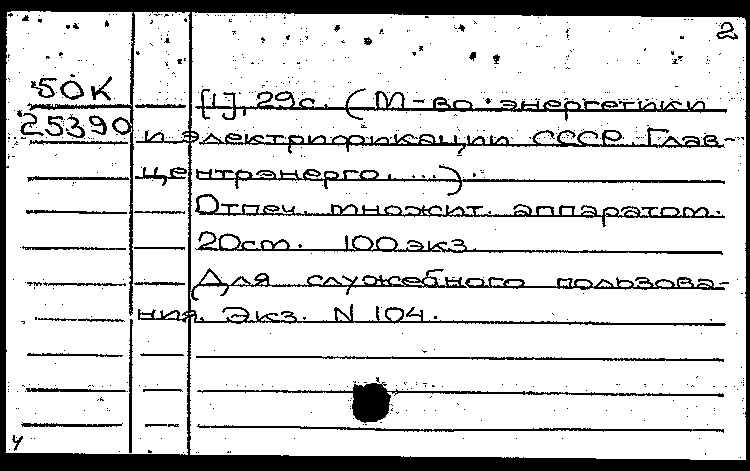 2
50К
[1], 29с. (М-во энергетики
25390
и электрификации СССР. Глав-
центрэнерго. ...).
Отпеч. множит. аппаратом.
20см. 100экз.
Для служебного пользова-
ния. Экз. N 104.